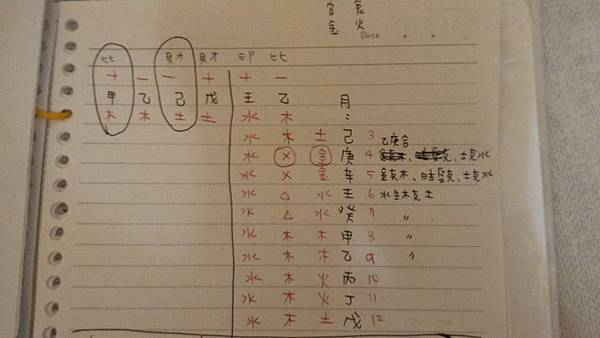 食
合 火
金 Date
比 財 財 印 比
+ − − + + −
甲 乙 己 戊 壬 乙 月
木 木 土 土 水 木 :
水 木 土 己 3 乙庚合
水 × 金 庚 4 土克水
水 × 金 辛 5 金克木、土克水
水 △ 水 壬 6 水生木克土
水 △ 水 癸 7 〃
水 木 木 甲 8 〃
水 木 木 乙 9 〃
水 木 火 丙 10
水 木 火 丁 11
水 木 土 戊 12